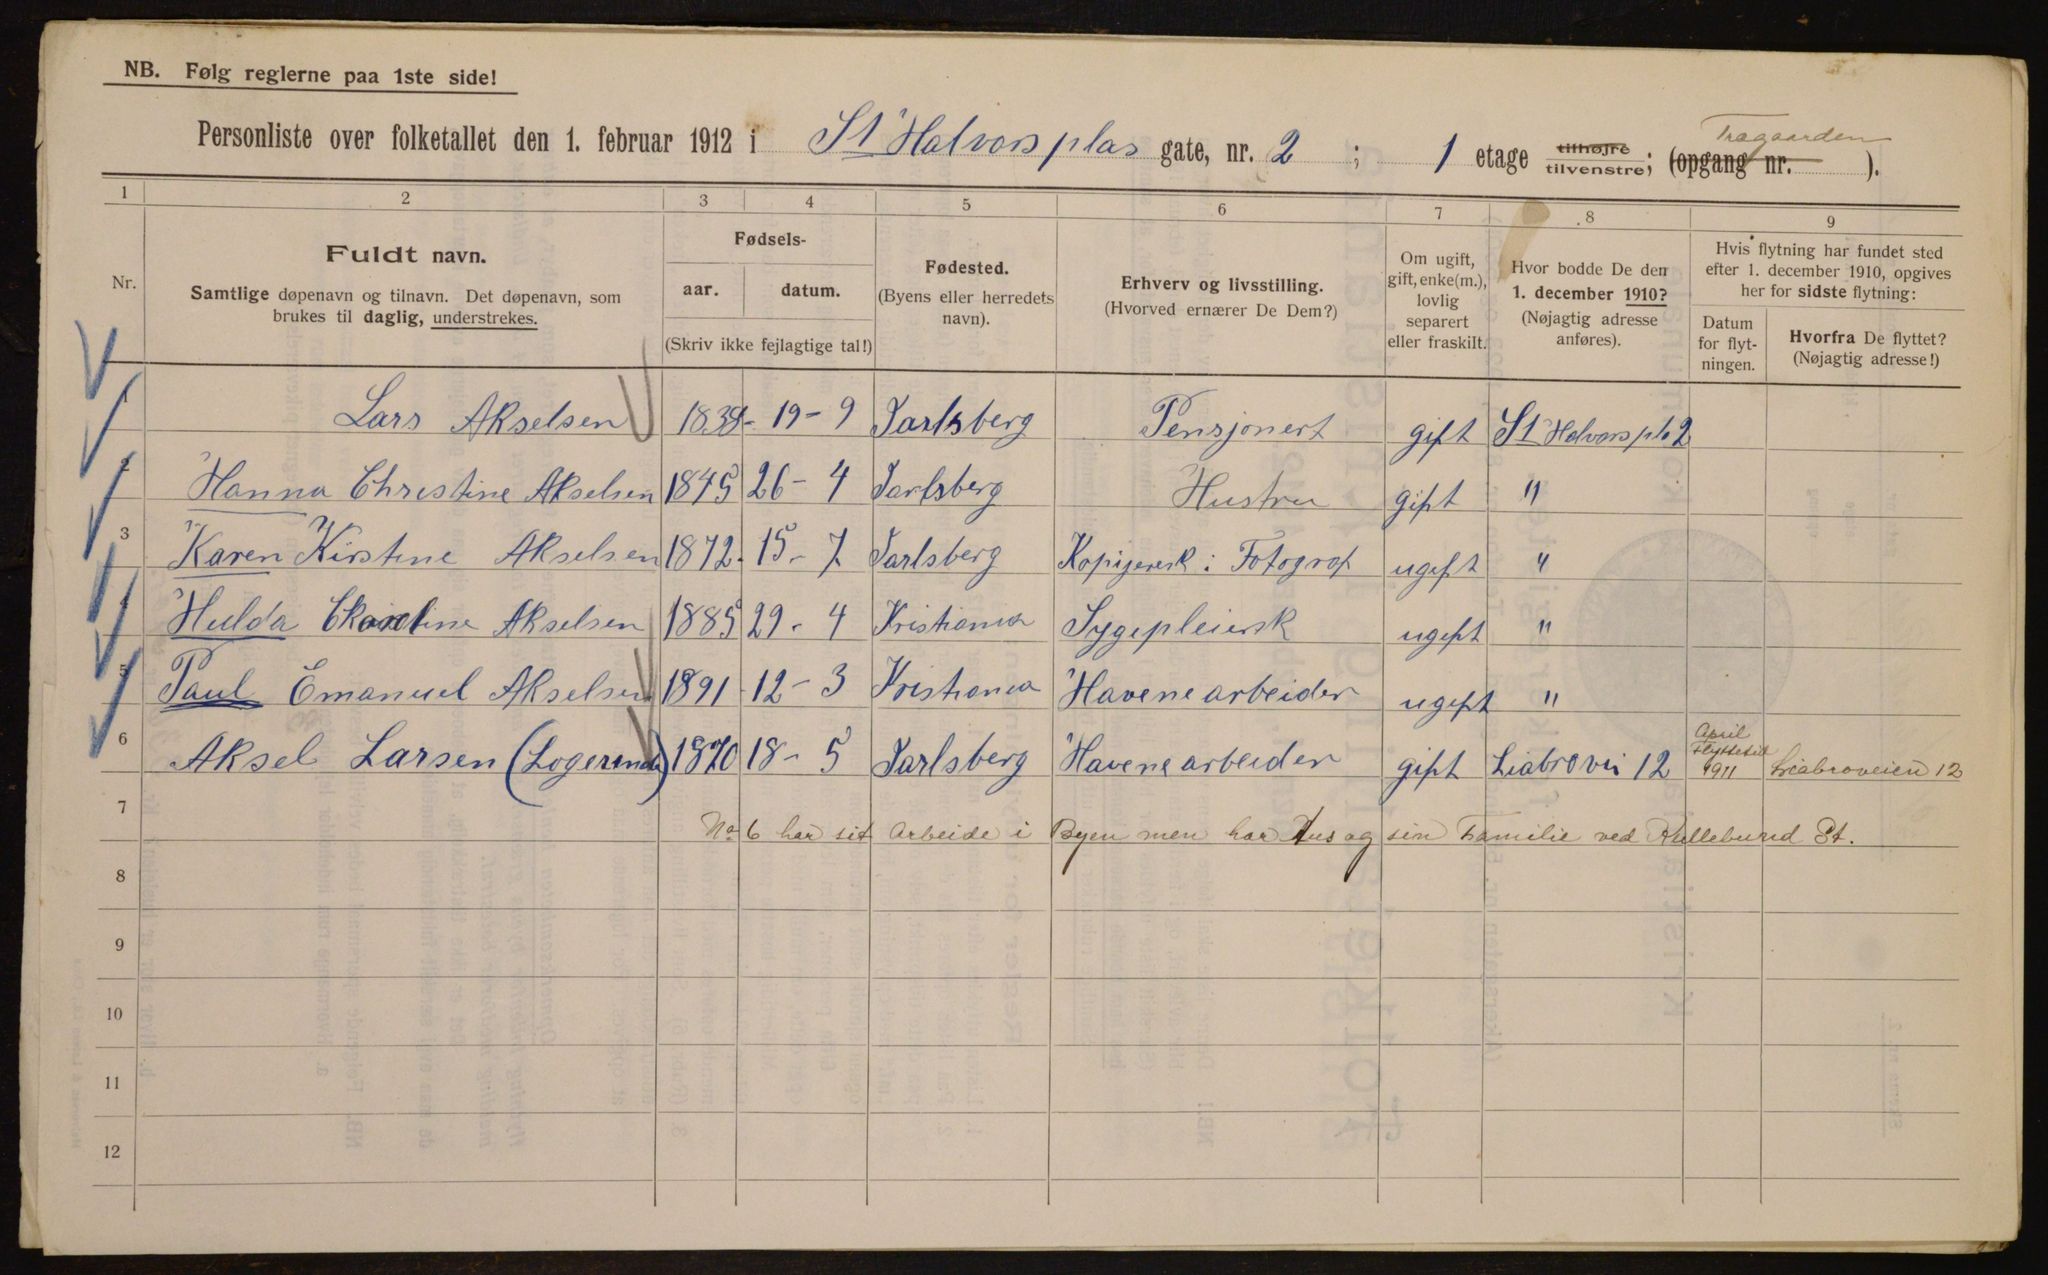 NB. Følg reglerne paa 1ste side!
Personliste over folketallet den 1. februar 1912 i St Halvors plas gate, nr. 2 ; 1 etage tilhøjre tilvenstre; (opgang nr. ).
1 2 3 4 5 6 7 8 9
Nr.
Fuldt navn.
Samtlige døpenavn og tilnavn. Det døpenavn, som
brukes til daglig, understrekes.
Fødsels-
aar. datum.
(Skriv ikke fejlagtige tal!)
Fødested.
(Byens eller herredets
navn).
Erhverv og livsstilling.
(Hvorved ernærer De Dem?)
Om ugift,
gift, enke(m.),
lovlig
separert
eller fraskilt.
Hvor bodde De den
1. december 1910?
(Nøjagtig adresse
anføres).
Hvis flytning har fundet sted
efter 1. december 1910, opgives
her for sidste flytning:
Datum
for flyt-
ningen.
Hvorfra De flyttet?
(Nøjagtig adresse!)
1 Lars Akselsen 19-9 Jarlsberg Pensjonert gift St Halvors pl. 2
2 Hanna Christine Akselsen 1845 26-4 Jarlsberg Hustru gift "
3 Karen Kirstine Akselsen 1872. 15-7 Jarlsberg Kopijeresk i Fotograf ugift "
4 Hulda Akselsen 1885 29-4 Kristiania Sygepleiersk ugift "
5 Paul Emanuel Akselsen 1891 12-3 Kristiania Havenearbeider ugift "
6 Aksel Larsen (Logerende) 1870 18-5 Jarlsberg Havenearbeider gift Liabrovei 12 April Flyttetid 1911 Liabroveien 12
7 No 6 har sit Arbeide i Byen men har Hus og sin Familie ved St.
8
9
10
11
12